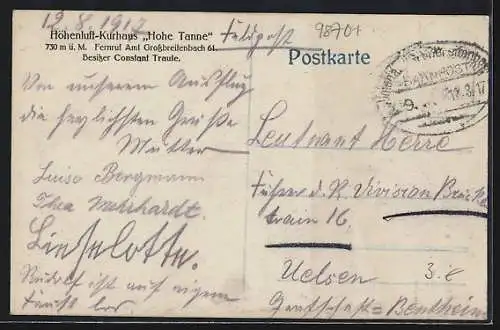 12.8.1917
Höhenluft-Kurhaus „Hohe Tanne"
730 m ü. M. Fernruf Amt Großbreitenbach 61.
Besitzer Constant Traute.
Feldpost
98701
Postkarte
BAHNPOST
12.8.17
Von unserem Ausflug
die herzlichsten Grüße
Mutter
Luise Bergmann
Thea Mehrhardt.
Lieselotte.
Rudolf ist auf eigene
Faust los.
Leutnant Herre
Führer d. R. Division Brücken
train 16.
Uelsen
Grafschaft Bentheim